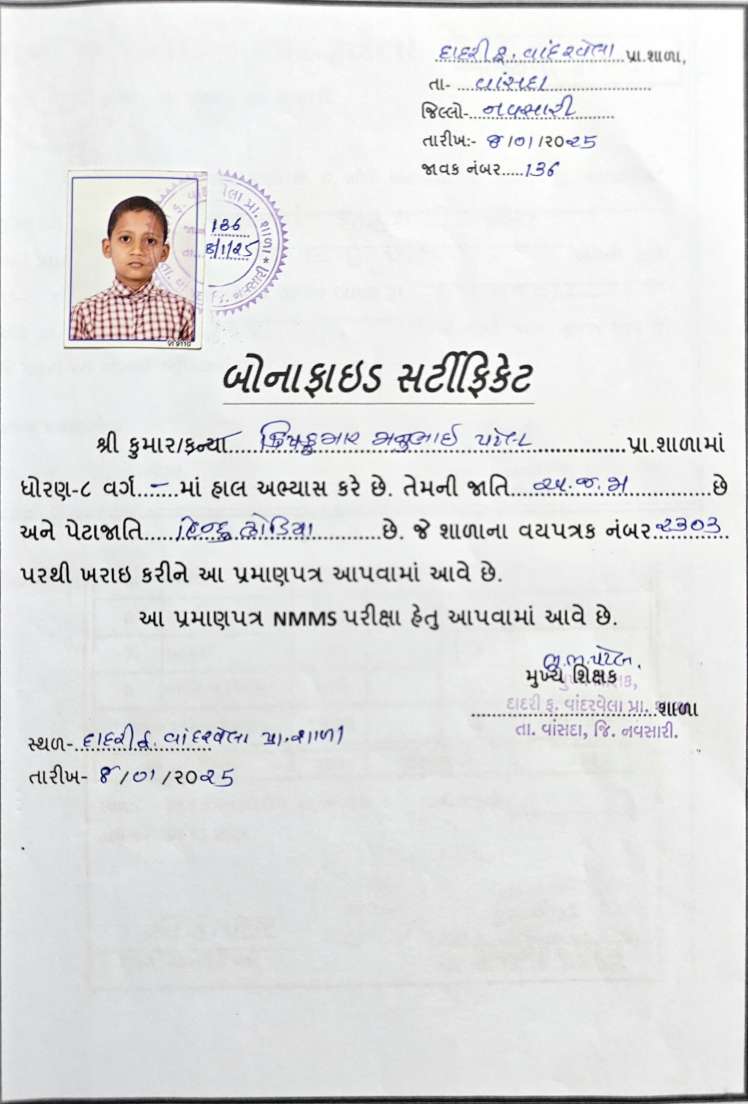 દાદરી ફ. વાંદરવેલા પ્રા.શાળા,
તા- વાંસદા
જિલ્લો- નવસારી
તારીખ:- ૪/૦૧/૨૦૨5
જાવક નંબર.....136
136
બોનાફાઇડ સર્ટીફિકેટ
શ્રી કુમાર/કન્યા.... મનુભાઈ પટેલ.....પ્રા.શાળામાં
ધોરણ-૮ વર્ગ....–....માં હાલ અભ્યાસ કરે છે. તેમની જાતિ....અ.જ.જા....છે
અને પેટાજાતિ.....હિન્દુ ઢોડિયા.....છે. જે શાળાના વયપત્રક નંબર..2303..
પરથી ખરાઇ કરીને આ પ્રમાણપત્ર આપવામાં આવે છે.
આ પ્રમાણપત્ર NMMS પરીક્ષા હેતુ આપવામાં આવે છે.
મુખ્ય શિક્ષક
દાદરી ફ. વાંદરવેલા પ્રા. શાળા
તા. વાંસદા, જિ. નવસારી.
સ્થળ- દાદરી ફ. વાંદરવેલા પ્રા.શાળા
તારીખ- ૪/૦1/૨૦૨5